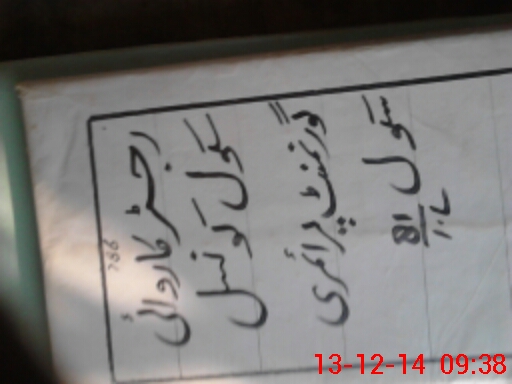 ۷۸۶
رجسٹر کاروائی
سکول کونسل
گورنمنٹ پرائمری
سکول 18
13-12-14 09:38